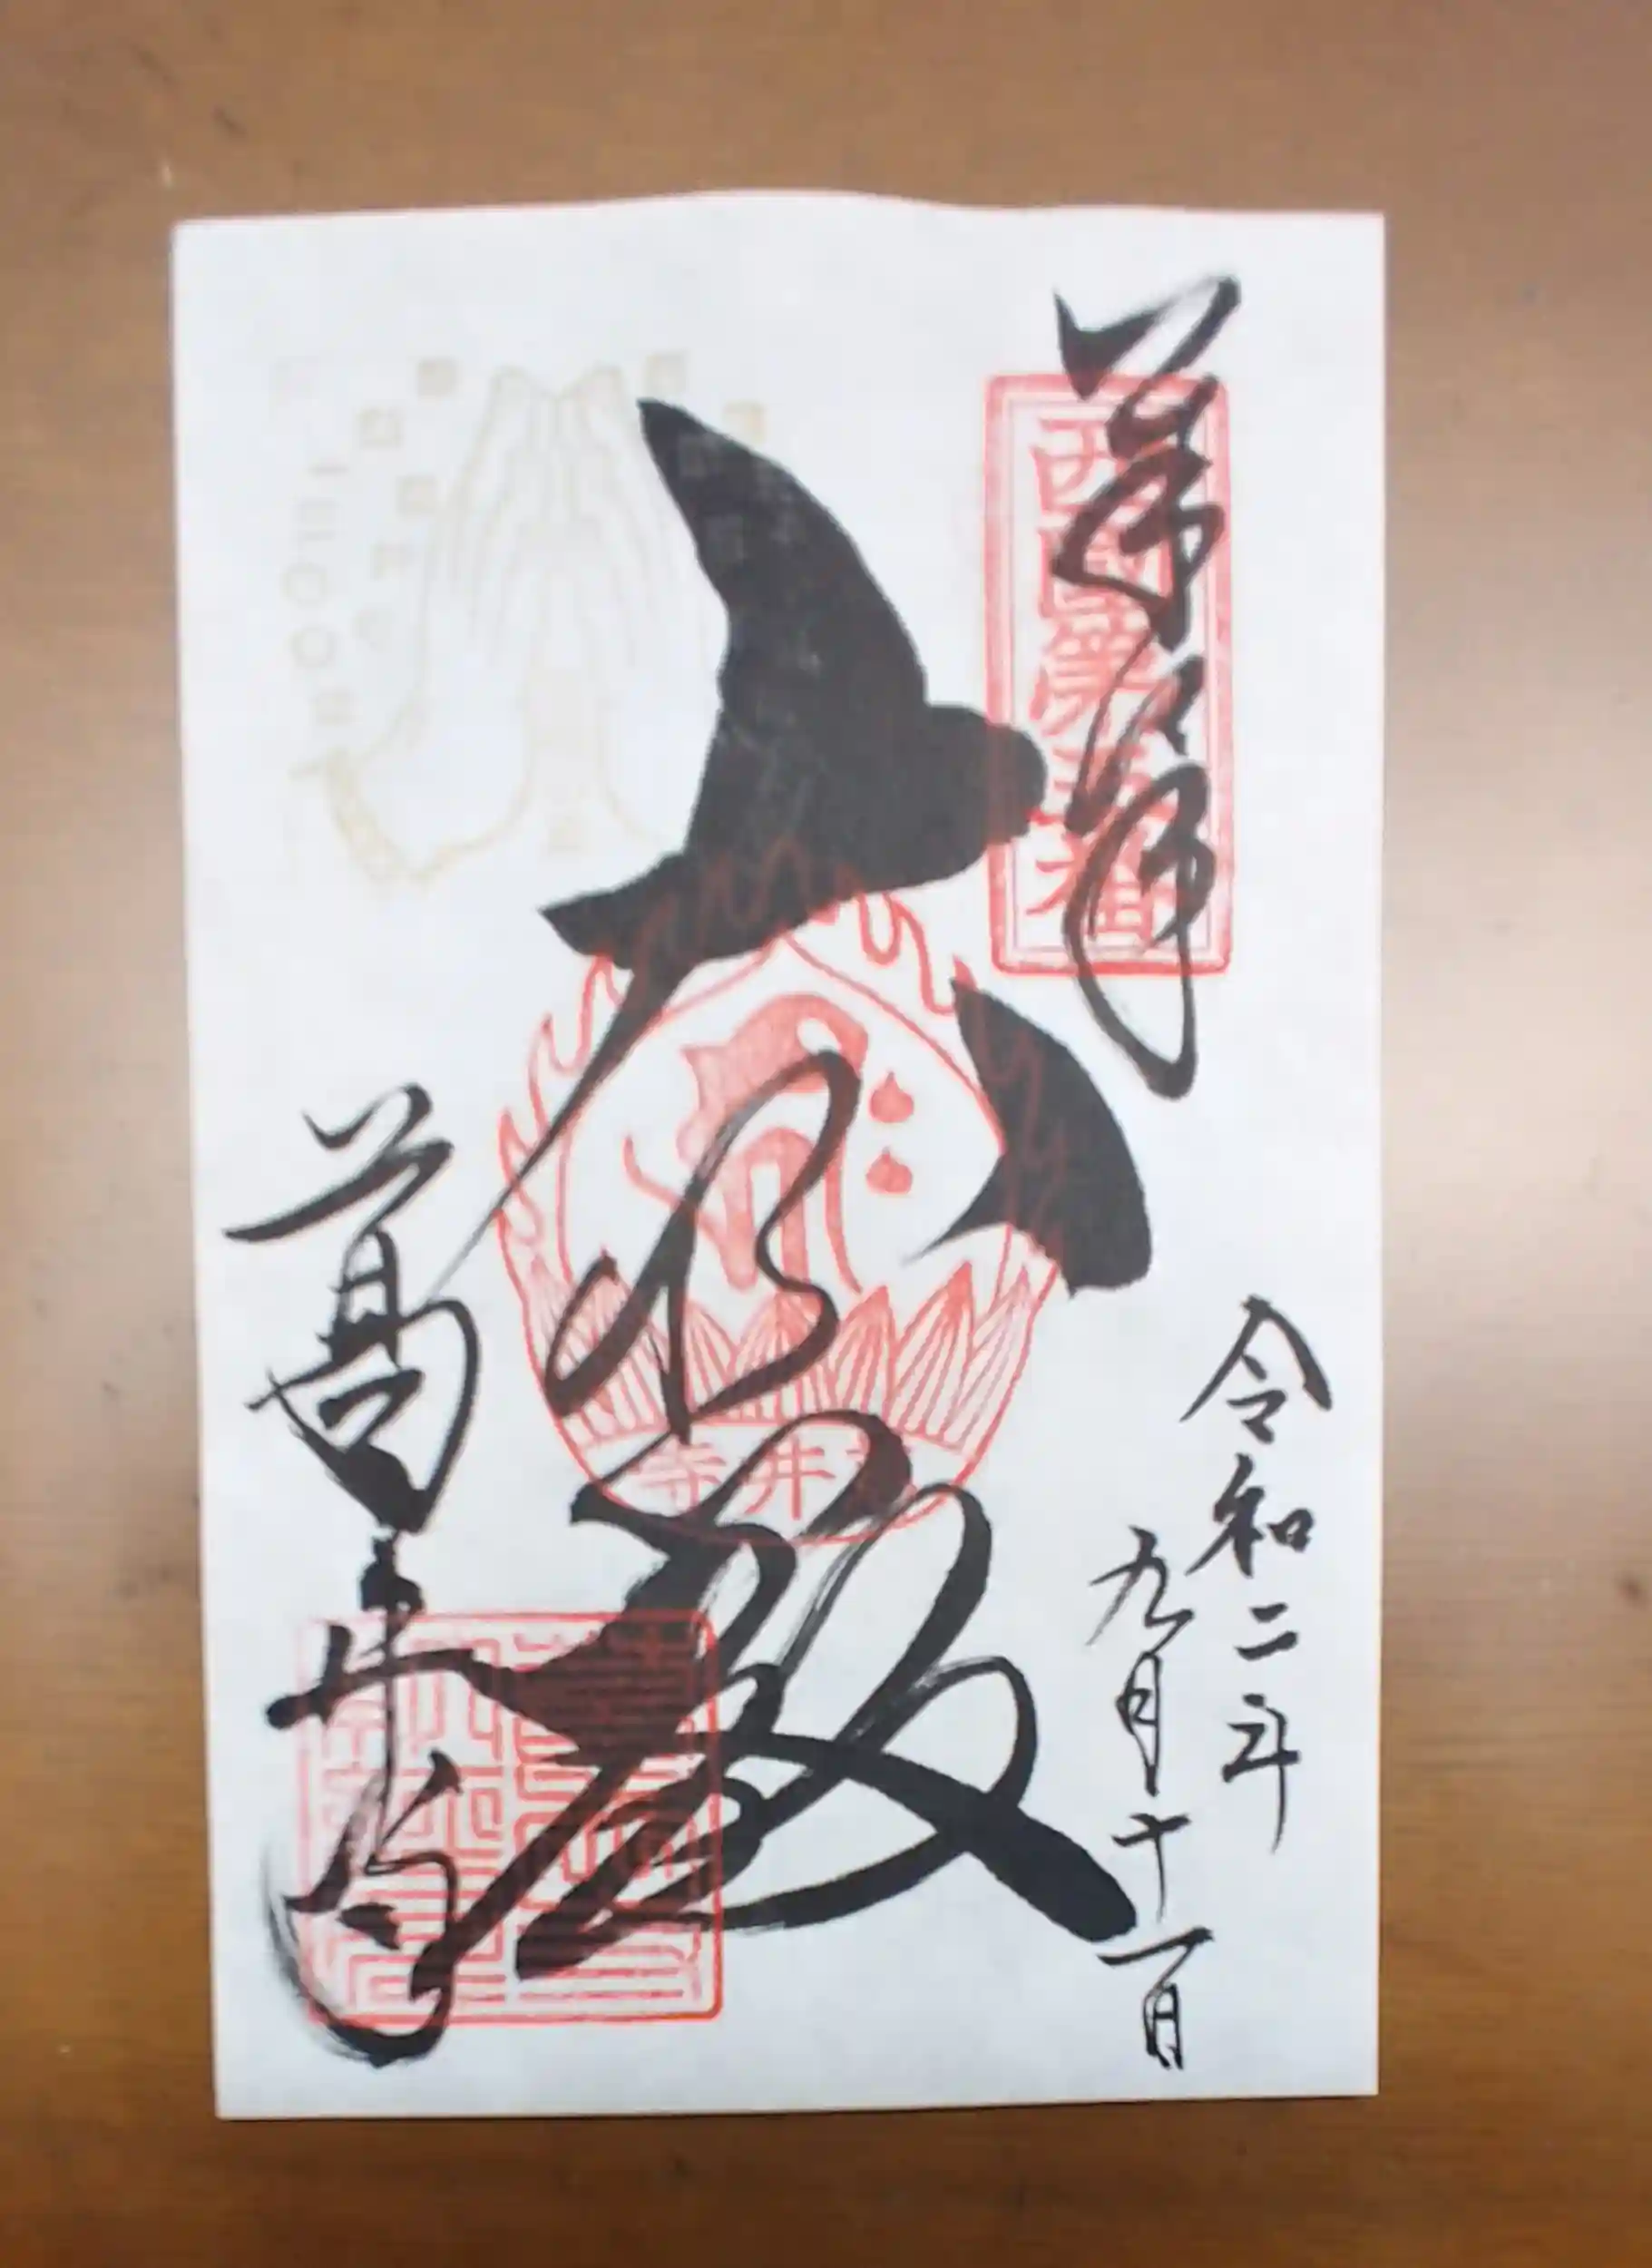 奉拝
西国第五番
令和二年
九月十一日
大悲殿
葛井寺
葛井寺